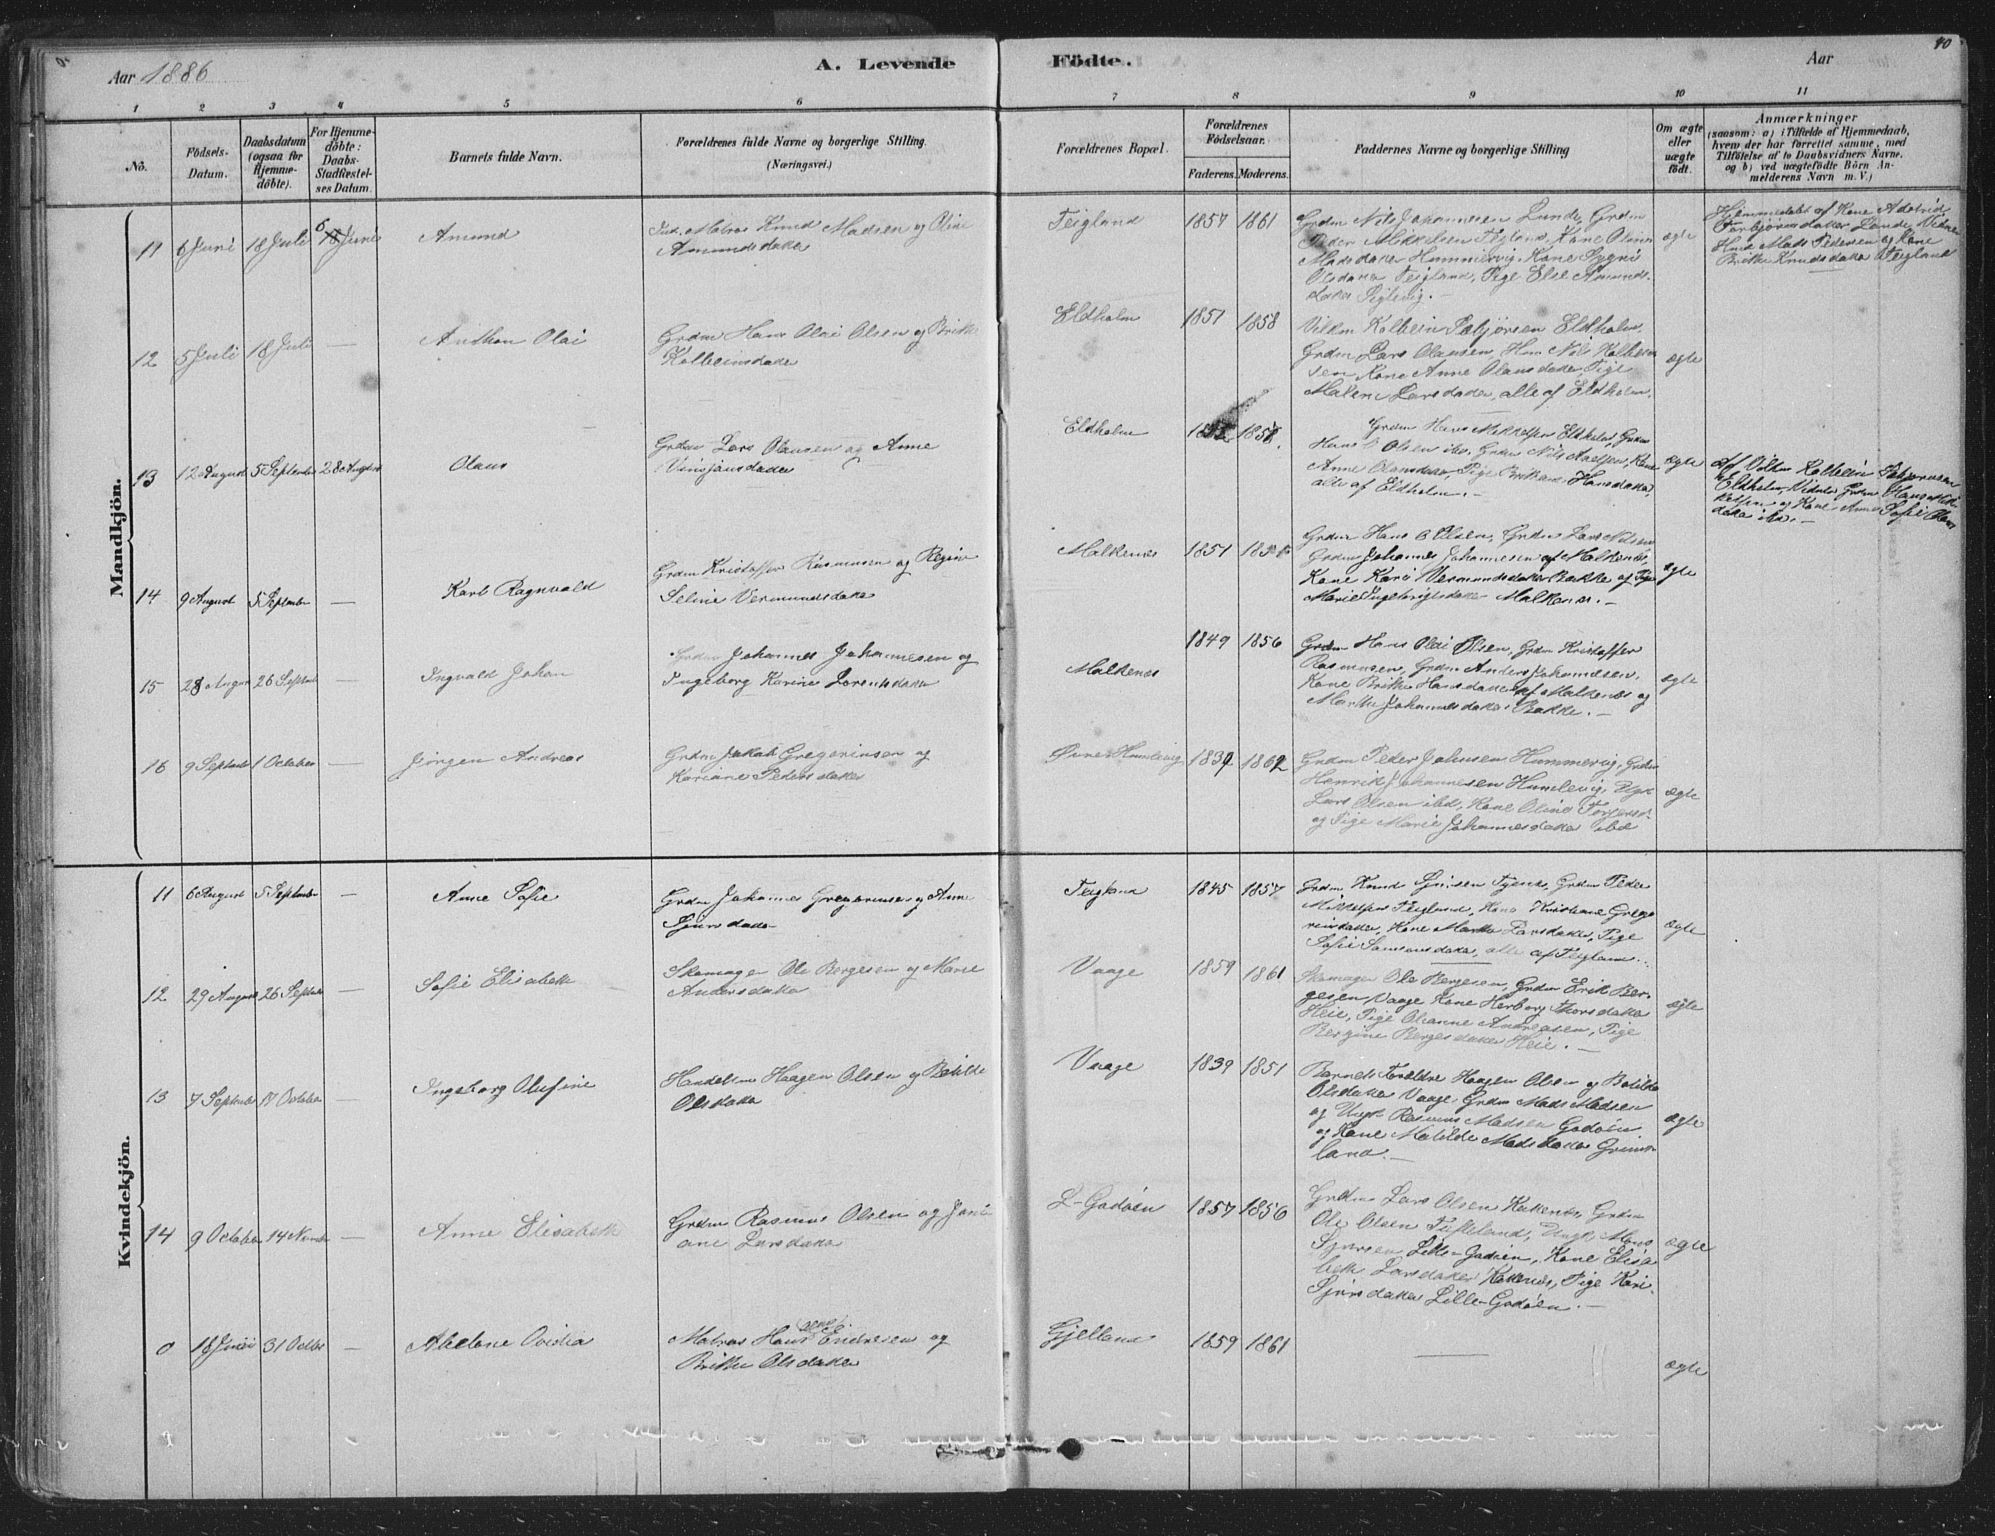 Aar 1886
A. Levende
Födte.
Aar
40
1 2 3 4 5 6 7 8 9 10 11
No.
Födsels-
Datum.
Daabsdatum
(ogsaa for
Hjemme-
döbte).
For Hjemme-
döbte:
Daabs-
Stadfæstel-
ses Datum.
Barnets fulde Navn.
Forældrenes fulde Navne og borgerlige Stilling.
(Næringsvei.)
Forældrenes Bopæl.
Forældrenes
Födselsaar.
Faderens. Moderens.
Faddernes Navne og borgerlige Stilling
Om ægte
eller
uægte
født.
Anmærkninger
(saasom: a) i Tilfælde af Hjemmedaab,
hvem der har forrettet samme, med
Tilföielse af to Daabsvidners Navne,
og b) ved uægtefödte Börn An-
melderens Navn m. V.)
Mandkjön.
11 6 Juni 18 Juli 6 Juni
Amund
Matros Knud Madsen og Oline
Amundsdater
Teigland
1857 1861
Grdm Nils Johannesen Lunde, Grdm
Peder Mikkelsen Teigland, Kone
Madsdater Hummervig, Kone
Olsdater Teigland, Pige Else Amunds-
dater
ægte
Hjemmedøbt af Kone
Torbjørnsdater Lunde, Vidner
Mads Pedersen og Kone
Britha Knudsdater Teigland
12 5 Juli 18 Juli —
Anthon Olai
Grdm Hans Olai Olsen og Britha
Kolbeinsdater
Eldholm
1851 1858
Kolbein Eldholm,
Grdm Lars Olausen, Nils Kolbein-
sen Kone Anne Olausdater, Pige
Malene Larsdater, alle af Eldholm.
ægte
13 12 August 5 September 28 August
Olaus
Grdm Lars Olausen og Anne
Eldholm
Grdm Hans Mikkelsen Eldholm, Grdm
Hans Olsen Grdm Nils Kone
Anne Olausdater, Pige Hansdater,
alle af Eldholm. —
ægte
Af Kolbein
Eldholm, Vidner Grdm Hans Mik-
kelsen og Kone Anne Sofie Olaus
14 9 August 5 September —
Karl Ragnvald
Grdm Kristoffer Rasmussen og Regine
Seline Vermundsdater
Malkenes
1851
Grdm Hans Olsen, Grdm Lars
Grdm Johannes Johannesen af Malkenes,
Kone Kari Vermundsdater Bakke og Pige
Marie Ingebrigtsdater Malkenes. —
ægte
15 28 August 26 September
Ingvald Johan
Grdm Johannes Johannesen og
Ingeborg Karine Lorentsdater
Malkenes
1849 1856
Grdm Hans Olai Olsen, Grdm Kristoffer
Rasmussen, Grdm Anders Johannesen,
Kone Britha Hansdater af Malkenes og
Martha Johannesdater Bakke. —
ægte
16 9 September 1 October —
Jørgen Andreas
Grdm Jakob Gregoriusen og
Kariane Pedersdater
Øvre Humlevig
1862
Grdm Peder Johnsen Hummervig, Grdm
Henrik Johannesen Humlevig, Ungk
Lars Olsen ibd, Kone Oline
og Pige Marie Johannesdater ibd
ægte
Kvindekjön.
11 6 August 5 September —
Anne Sofie
Grdm Johannes Gregoriusen og Anne
Sjursdater
Teigland
1845 1857
Grdm Knud Grdm Peder
Mikkelsen Teigland, Kone Kristiane Grego-
riusdater, Kone Martha Larsdater, Pige
Sofie Samsonsdater, alle af Teigland.
ægte
12 29 August 26 September —
Sofie Elisabeth
Skomager Ole Bergesen og Marie
Andersdater
Vaage
1859 1861
Skomager Ole Bergesen, Grdm Erik Ber-
gesen, Vaage Kone Herborg Thorsdater
Heie, Pige Olianne Andreasen, Pige
Bergine Bergesdater Heie. —
ægte
13 7 September 17 October —
Ingeborg Olufine
Handelsm Haagen Olsen og Botilde
Olsdater
Vaage
1839 1851
Barnets Forældre Haagen Olsen og Botilde
Olsdater Vaage Grdm Mads Madsen
og Ungk Rasmus Madsen Godøen
og Kone Matilde Madsdater Grims-
land. —
ægte
14 9 October 14 November —
Anne Elisabeth
Grdm Rasmus Olsen og
Larsdater
L-Godøen
1857 1856
Grdm Lars Olsen Kakenes, Grdm
Ole Olsen Ungk Mons
Sjursen, Lille-Godøen, Kone Elisa-
beth Larsdater Kakenes, Pige Kari
Sjursdater Lille-Godøen. —
ægte
0 18 Juni 31 October —
Abelone Ovidia
Matros Hans Endresen og
Britha Olsdater
Gjelland
1859 1861
—
ægte